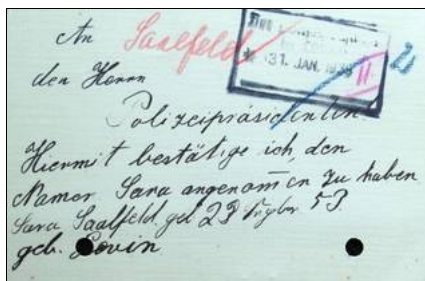 An Saalfeld
den Herrn
31. JAN. 1939
II
Polizeipräsidenten
Hiermit bestätige ich, den
Namen Sara angenom̅en zu haben
Sara Saalfeld. geb 23 53.
geb. Levin